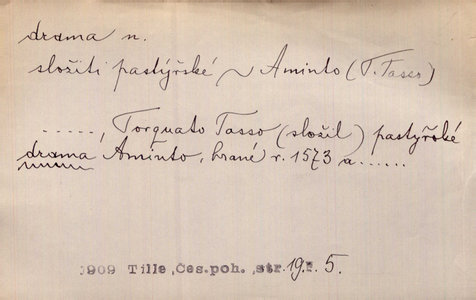 drama n.
složiti pastýřské ~ Aminto (T. Tasso)
......, Torquato Tasso (složil) pastyřské
drama Aminto, hrané r. 1573 a......
1909 Tille, Čes.poh. ,str.19.ř. 5.